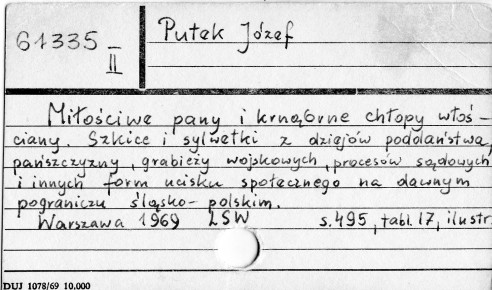 61335 II
Putek Józef
Miłościwe pany i krnąbrne chłopy włoś-
ciany. Szkice i sylwetki z dziejów poddaństwa,
pańszczyzny, grabieży wojskowych, procesów sądowych
i innych form ucisku społecznego na dawnym
pograniczu śląsko-polskim.
Warszawa 1969 LSW s. 495, tabl. 17, ilustr.
DUJ 1078/69 10,000